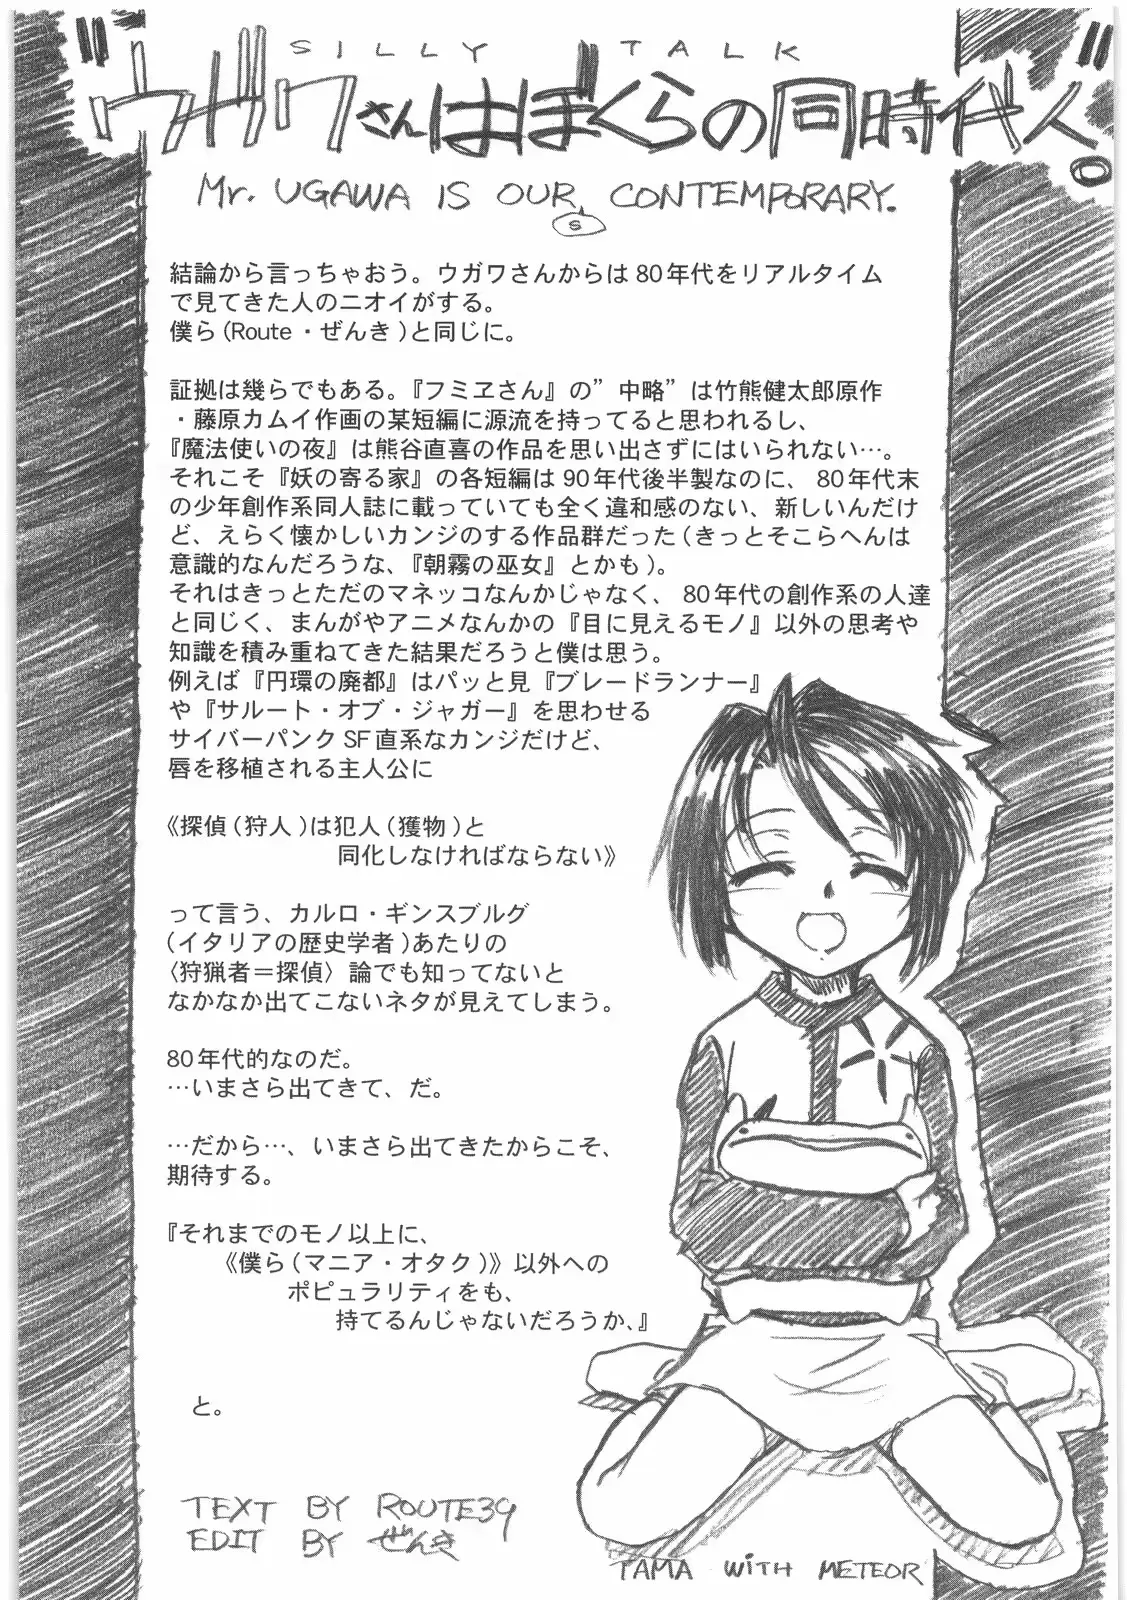 SILLY TALK
"ウガワさんはぼくらの同時代人。"
Mr. UGAWA IS OUR CONTEMPORARY.
S
結論から言っちゃおう。ウガワさんからは80年代をリアルタイム
で見てきた人のニオイがする。
僕ら(Route・ぜんき)と同じに。
証拠は幾らでもある。『フミヱさん』の”中略”は竹熊健太郎原作
・藤原カムイ作画の某短編に源流を持ってると思われるし、
『魔法使いの夜』は熊谷直喜の作品を思い出さずにはいられない…。
それこそ『妖の寄る家』の各短編は90年代後半製なのに、80年代末
の少年創作系同人誌に載っていても全く違和感のない、新しいんだけ
ど、えらく懐かしいカンジのする作品群だった(きっとそこらへんは
意識的なんだろうな、『朝霧の巫女』とかも)。
それはきっとただのマネッコなんかじゃなく、80年代の創作系の人達
と同じく、まんがやアニメなんかの『目に見えるモノ』以外の思考や
知識を積み重ねてきた結果だろうと僕は思う。
例えば『円環の廃都』はパッと見『ブレードランナー』
や『サルート・オブ・ジャガー』を思わせる
サイバーパンクSF直系なカンジだけど、
唇を移植される主人公に
《探偵(狩人)は犯人(獲物)と
同化しなければならない》
って言う、カルロ・ギンスブルグ
(イタリアの歴史学者)あたりの
〈狩猟者＝探偵〉論でも知ってないと
なかなか出てこないネタが見えてしまう。
80年代的なのだ。
…いまさら出てきて、だ。
…だから…、いまさら出てきたからこそ、
期待する。
『それまでのモノ以上に、
《僕ら(マニア・オタク)》以外への
ポピュラリティをも、
持てるんじゃないだろうか、』
と。
TEXT BY ROUTE39
EDIT BY ぜんき
TAMA WITH METEOR